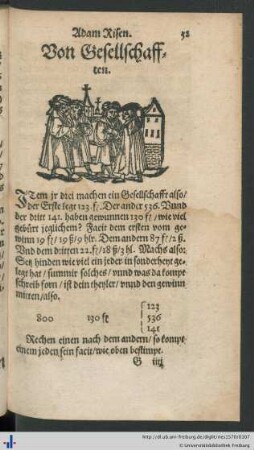 Adam Risen. 52
Von Gesellschaff-
ten.
ITem jr drei machen ein Gesellschafft also/
der Erste legt 123. fl. Der ander 536. Vnnd
der dritt 141. haben gewunnen 130 fl/ wie viel
gebürt jeglichem? Facit dem ersten vom ge-
winn 19 fl/ 19 ß/ 9 hlr. Dem andern 87 fl/ 2 ß.
Vnd dem dritten 22. fl/ 18 ß/ 3 hl. Machs also:
Setz hinden wie viel ein jeder in sonderheyt ge-
legt hat/ summir solches/ vnnd was da kompt
schreib forn/ ist dein theyler/ vnnd den gewinn
mitten/ also.
123
800 130 fl 536
141
Rechen einen nach dem andern/ so kompt
einem jeden sein facit/ wie oben bestimpt.
G iiij
http://dl.ub.uni-freiburg.de/diglit/
Universitätsbibliothek Freiburg